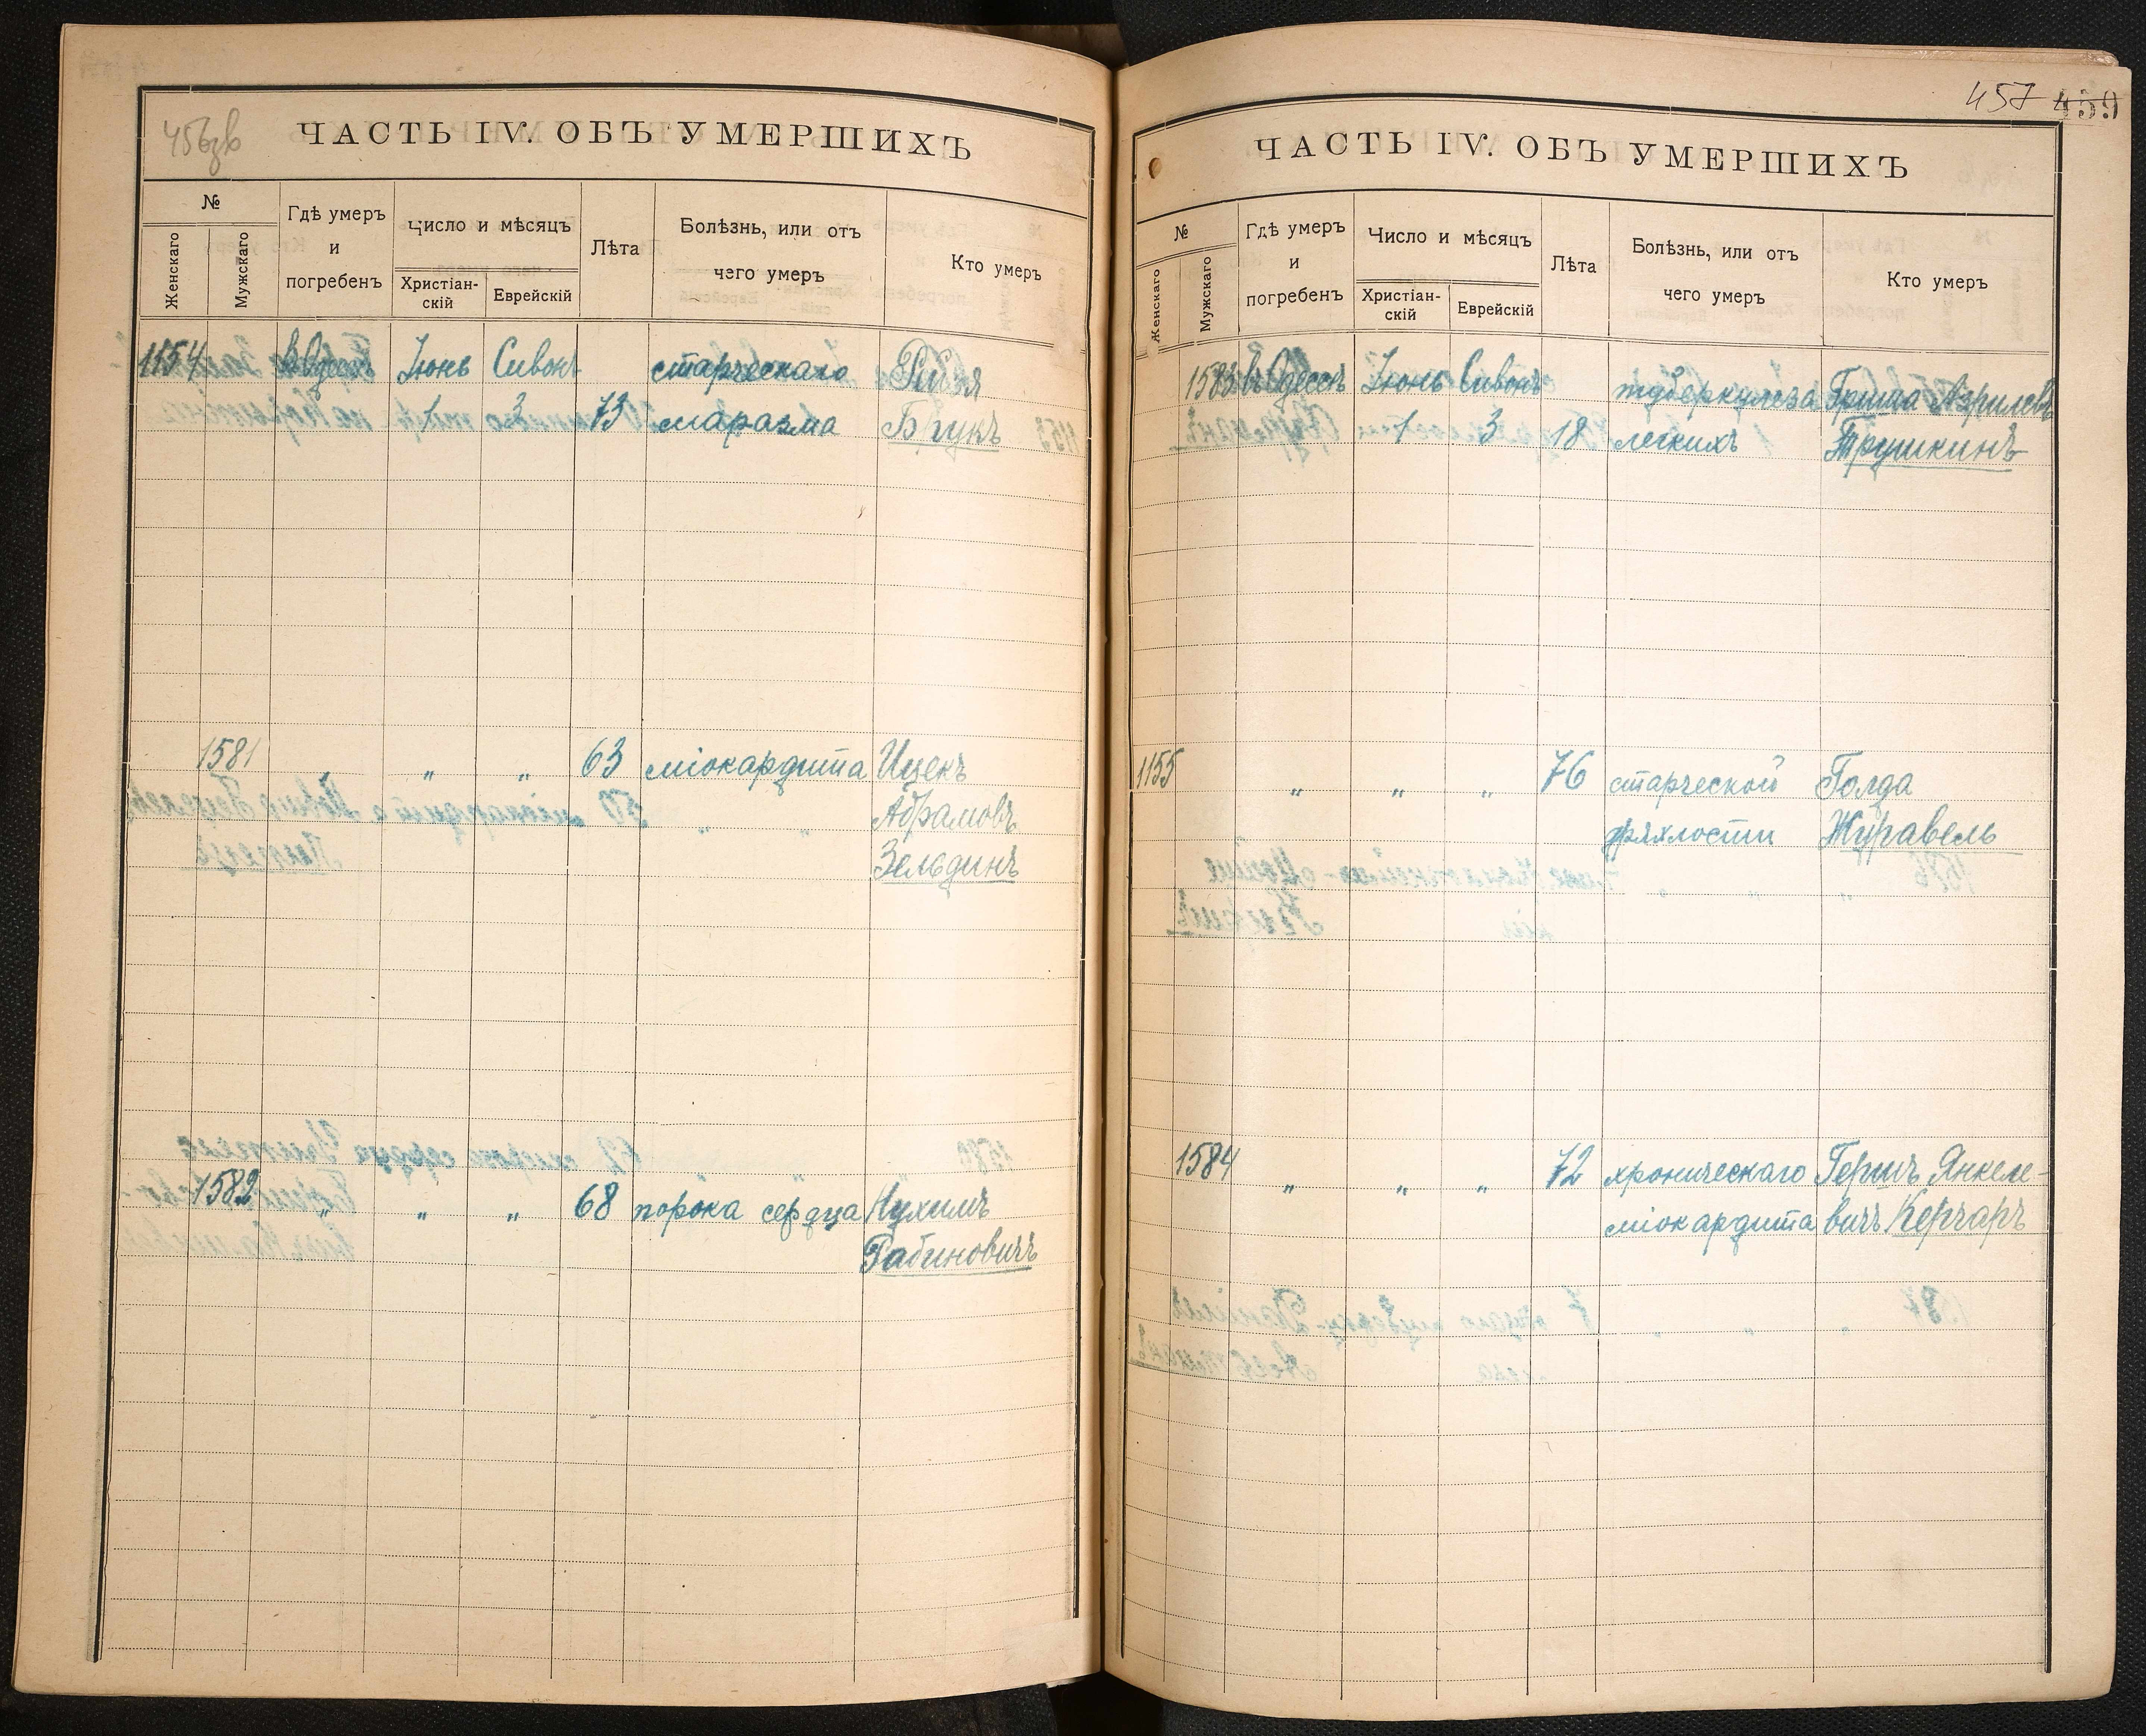 456зв
ЧАСТЬ IV. ОБЪ УМЕРШИХЪ
№
Женскаго
Мужскаго
Гдѣ умеръ
и
погребенъ
Число и мѣсяцъ
Христіан-
скій
Еврейскій
Лѣта
Болѣзнь, или отъ
чего умеръ
Кто умеръ
1154 въ Одессѣ Іюнь Сивонъ старческаго
1 3 73 маразма Брукъ
1581 „ „ „ 63 міокардита Ицекъ
Абрамовъ
Зельдинъ
1582 „ „ „ 68 порока сердца Нухимъ
Рабиновичъ
457 459
ЧАСТЬ IV. ОБЪ УМЕРШИХЪ
№
Женскаго
Мужскаго
Гдѣ умеръ
и
погребенъ
Число и мѣсяцъ
Христіан-
скій
Еврейскій
Лѣта
Болѣзнь, или отъ
чего умеръ
Кто умеръ
1583 въ Одессѣ Іюнь Сивонъ туберкулеза Гриша Азрилевъ
1 3 18 легкихъ Трушкинъ
1155 „ „ „ 76 старческой Голда
дряхлости Журавель
1584 „ „ „ 72 хроническаго Гершъ Янкеле-
міокардита вичъ Керчаръ